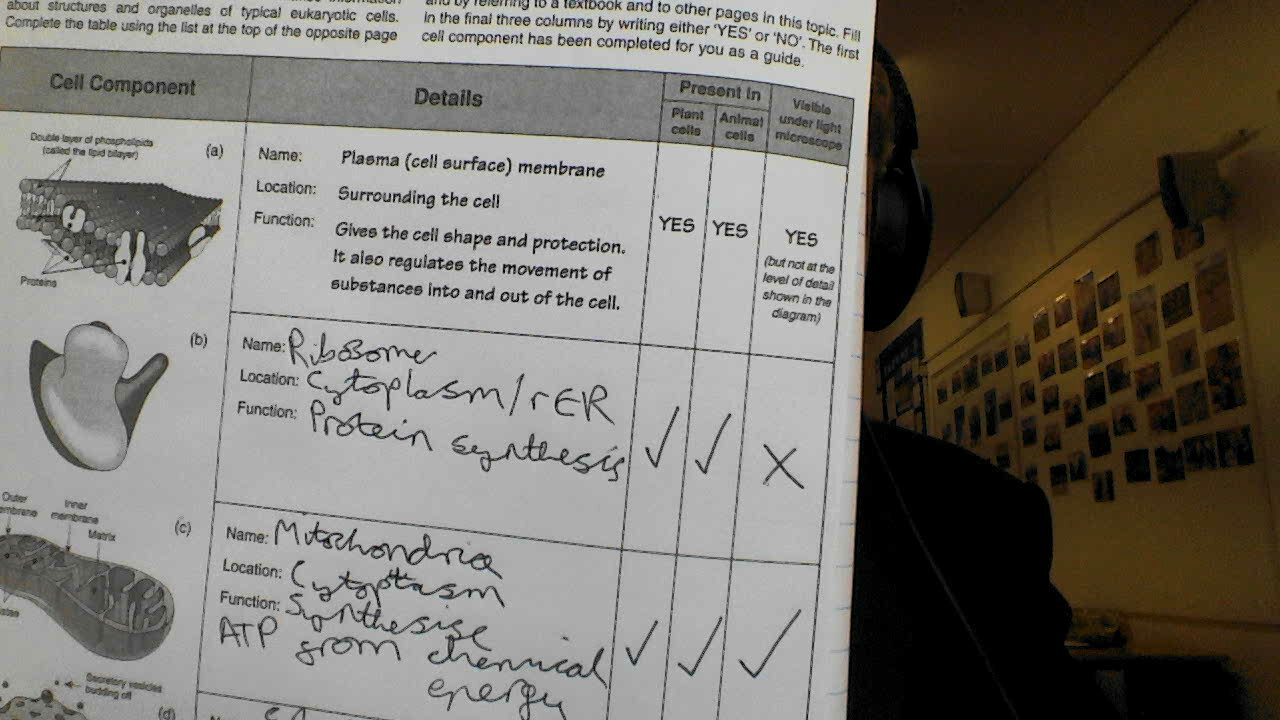 about structures and organelles of typical eukaryotic cells.
Complete the table using the list at the top of the opposite page
and by referring to a textbook and to other pages in this topic. Fill
in the final three columns by writing either 'YES' or 'NO'. The first
cell component has been completed for you as a guide.
Cell Component
Details
Present in
Plant
cells
Animal
cells
Visible
under light
microscope
Double layer of phospholipids
(called the lipid bilayer)
Proteins
(a)
Name: Plasma (cell surface) membrane
Location: Surrounding the cell
Function: Gives the cell shape and protection.
It also regulates the movement of
substances into and out of the cell.
YES
YES
YES
(but not at the
level of detail
shown in the
diagram)
(b)
Name: Ribosome
Location: Cytoplasm/rER
Function: Protein synthesis
Outer
Inner
membrane
Matrix
(c)
Name: Mitochondria
Location: Cytoplasm
Function: Synthesise
ATP from chemical
energy
Secretory vesicles
budding off
(d)